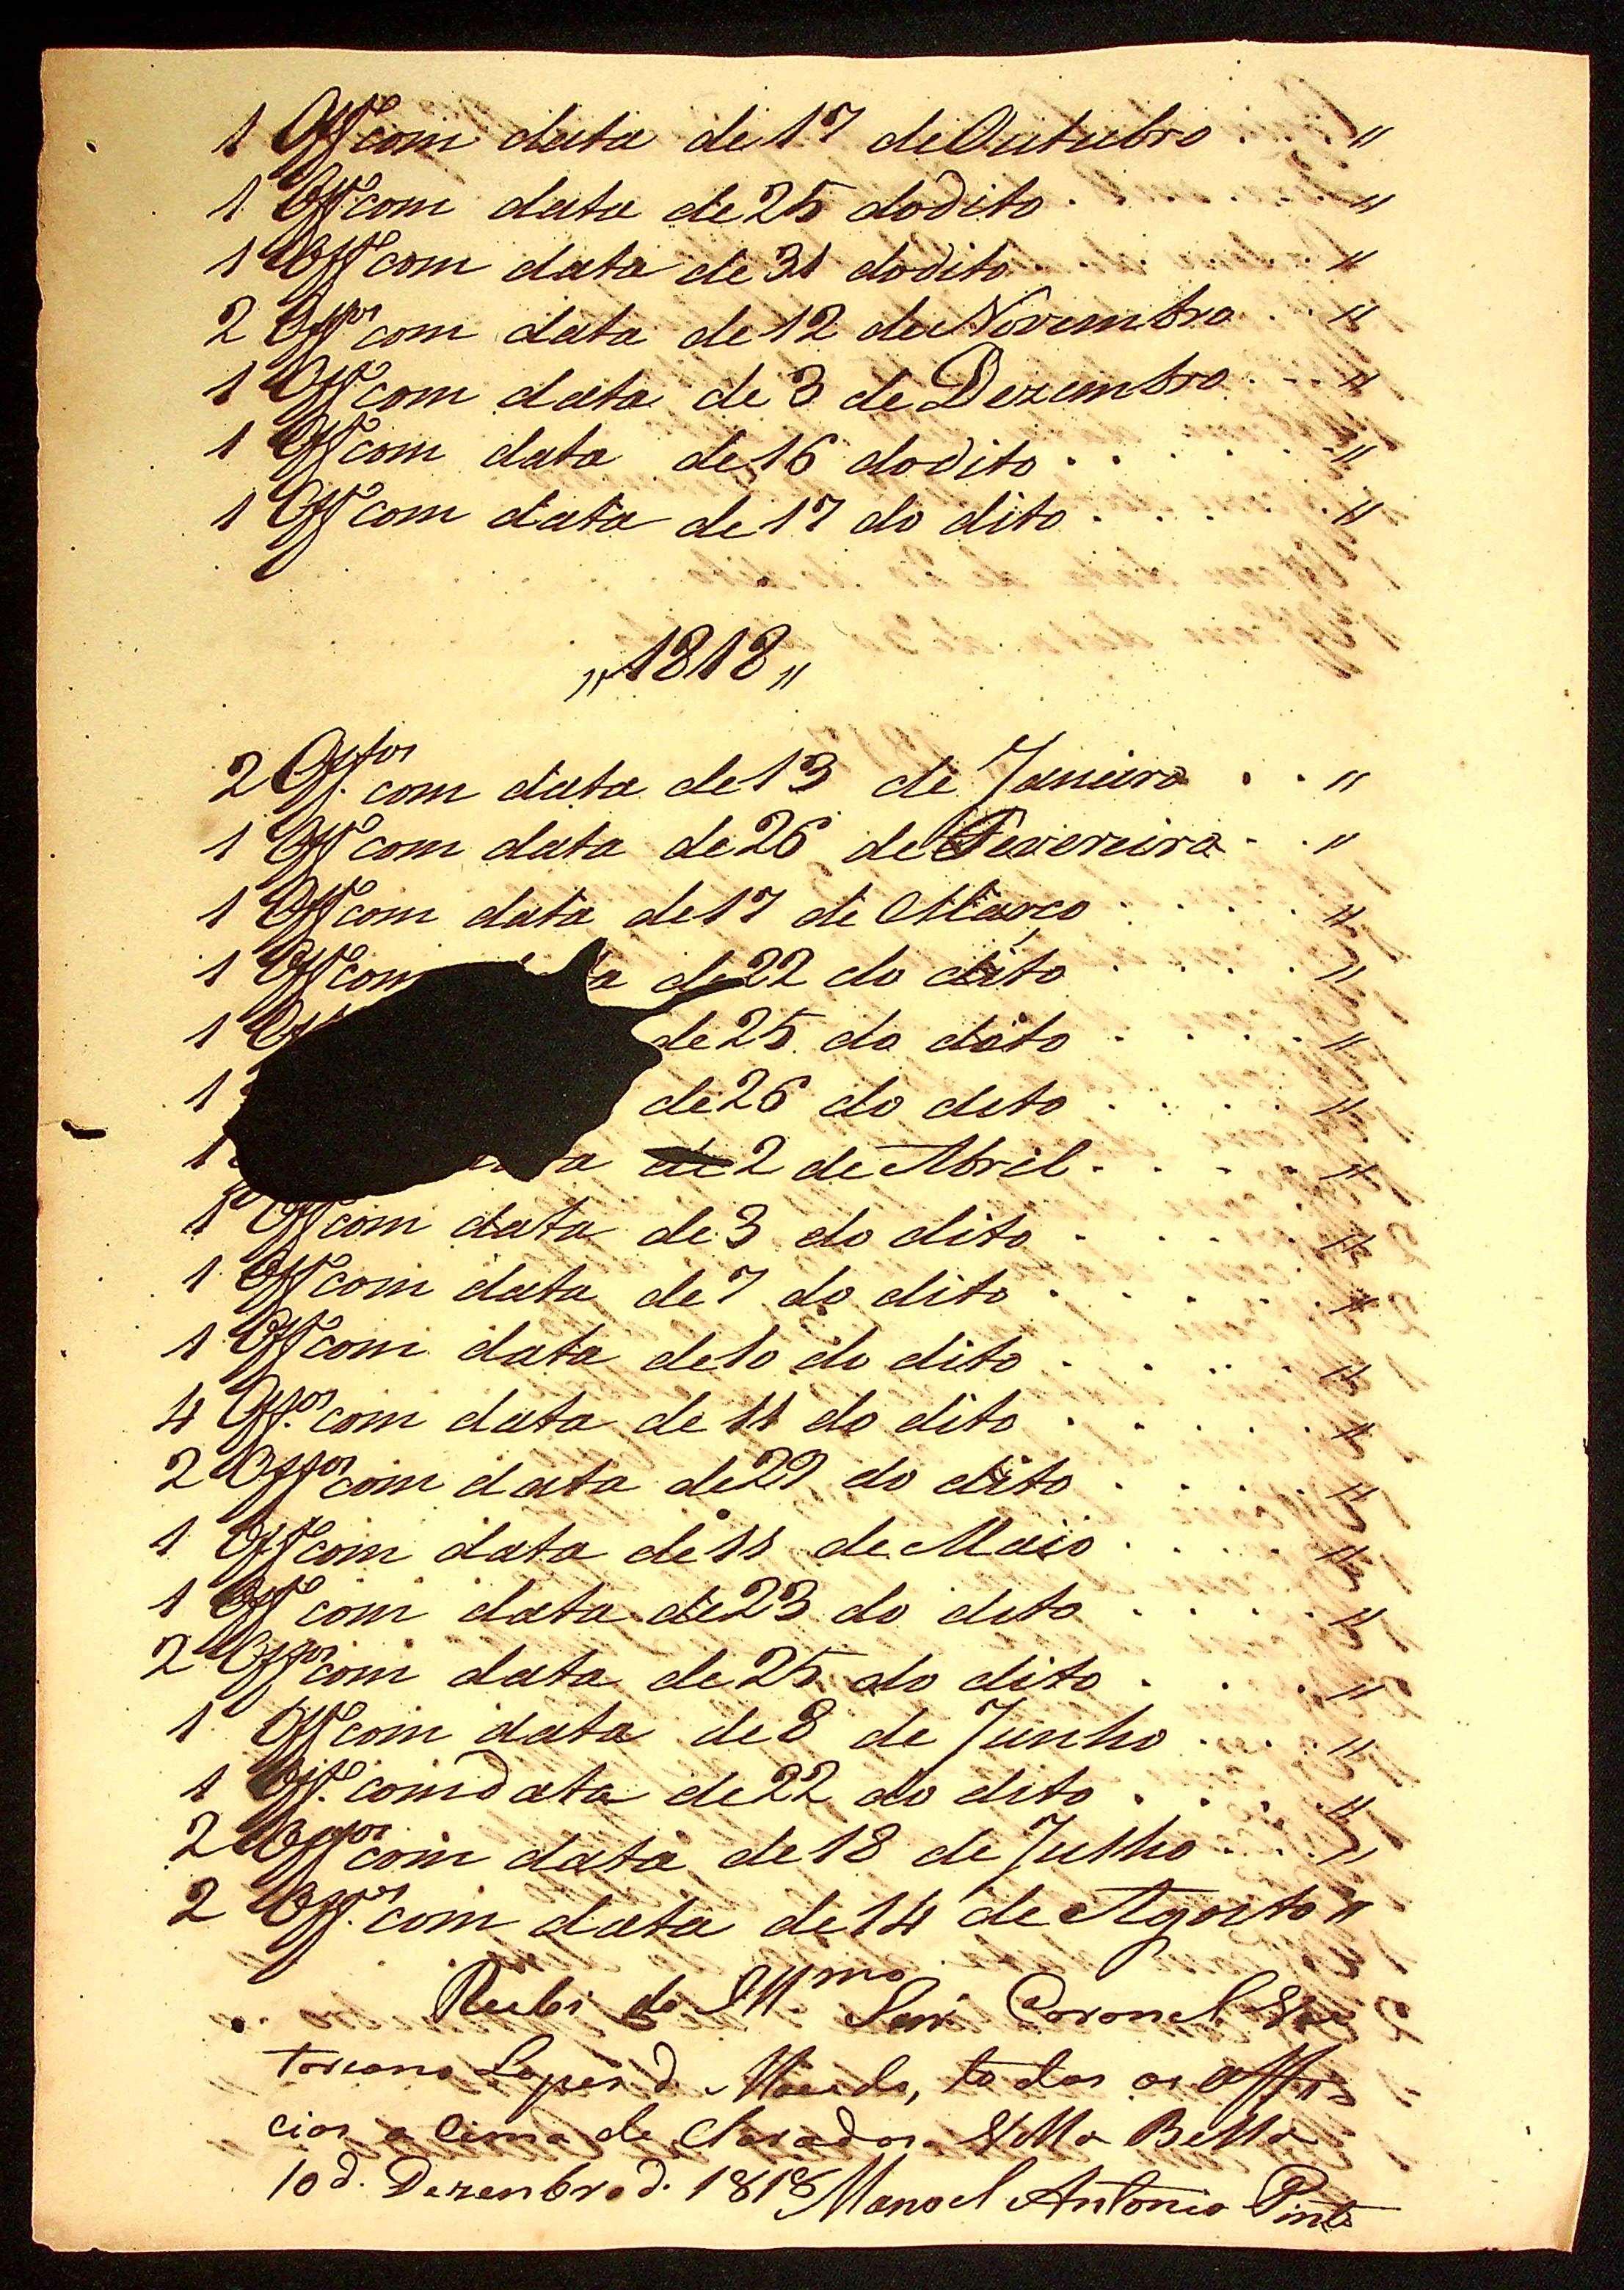 1 Offº com data de 17 de Outubro . . "
1 Offº com data de 25 do dito . . . "
1 Offº com data de 31 do dito . . . "
2 Offos com data de 12 de Novembro . . "
1 Offº com data de 3 de Dezembro . . . "
1 Offº com data de 16 do dito . . . . . . "
1 Offº com data de 17 do dito . . . . "
"1818"
2 Offos com data de 13 de Janeiro . . "
1 Offº com data de 26 de Fevereiro . . "
1 Offº com data de 17 de Março . . . . "
1 Offº com de 22 do dito . . . . "
1 de 25 do dito . . . . "
1 de 26 do dito . . . . "
1 de 2 de Abril . . . . "
1 Offº com data de 3 do dito . . . . "
1 Offº com data de 7 do dito . . . . . "
1 Offº com data de 10 do dito . . . . "
4 Offos com data de 11 do dito . . . . . "
2 Offos com data de 29 do dito . . . . "
1 Offº com data de 11 de Maio . . . . "
1 Offº com data de 23 do dito . . . . "
2 Offos com data de 25 do dito . . . "
1 Offº com data de 8 de Junho . . . "
1 Offº com data de 22 do dito . . . . "
2 Offos com data de 18 de Julho . . . "
2 Offos com data de 14 de Agosto "
Recebi do Illmo Senr Coronel
Lopes d Macedo, todos os offi
cios a Cima de Clarados Villa Bella
10 d. Dezenbro d. 1818 Manoel Antonio Pinto